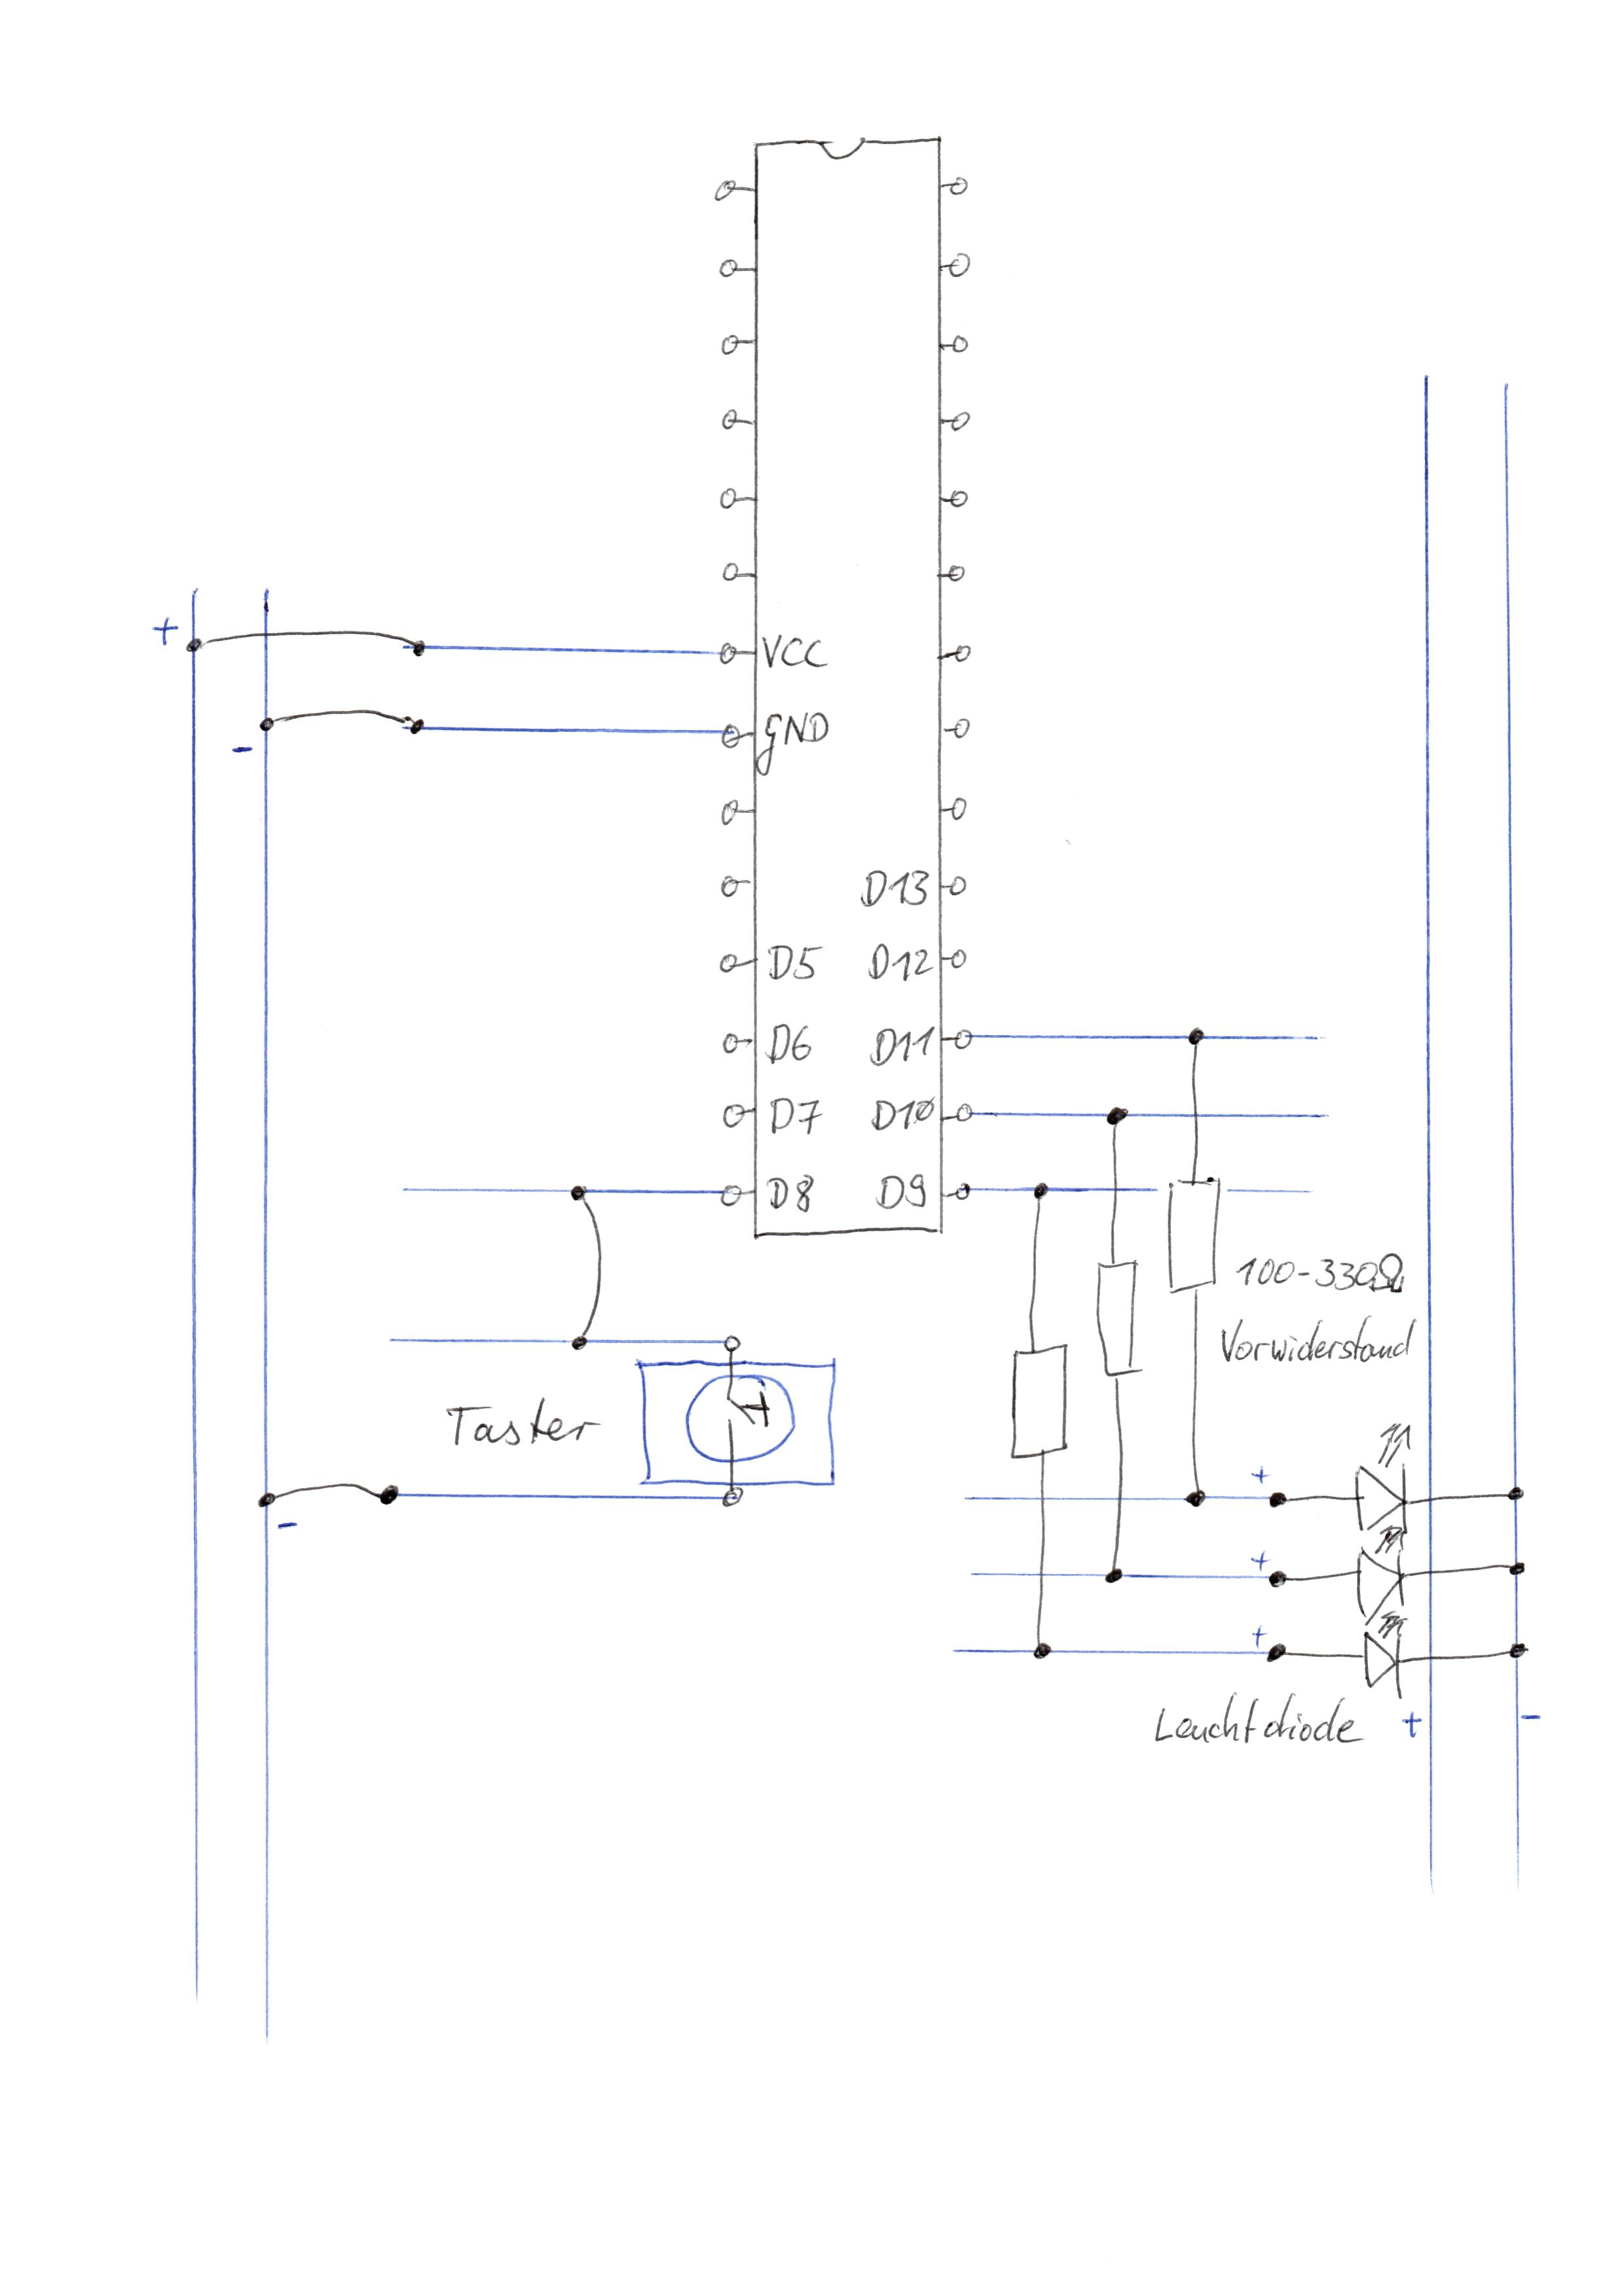 +
VCC
-
GND
D13
D5
D12
D6
D11
D7
D10
D8
D9
100-330Ω
Vorwiderstand
Taster
+
-
+
+
Leuchtdiode
+
-